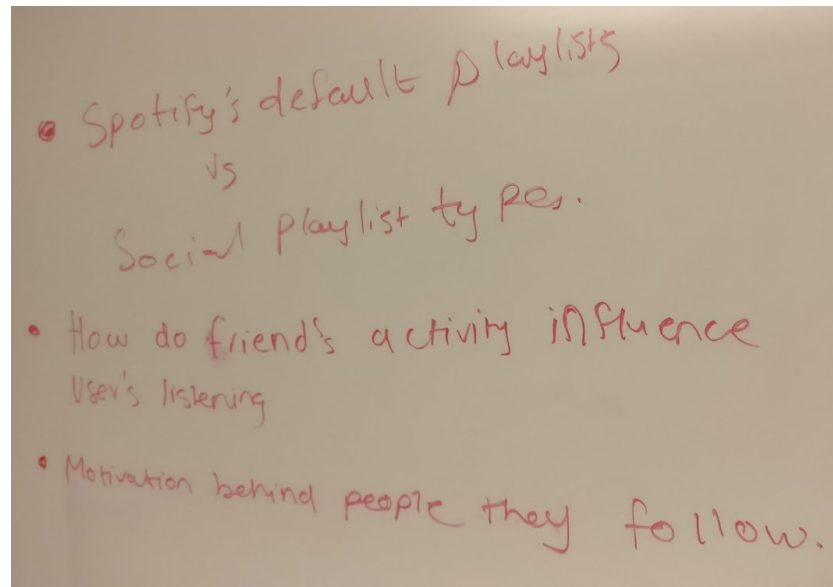 • Spotify's default playlists
vs
Social playlist types.
• How do friend's activity influence
User's listening
• Motivation behind people they follow.